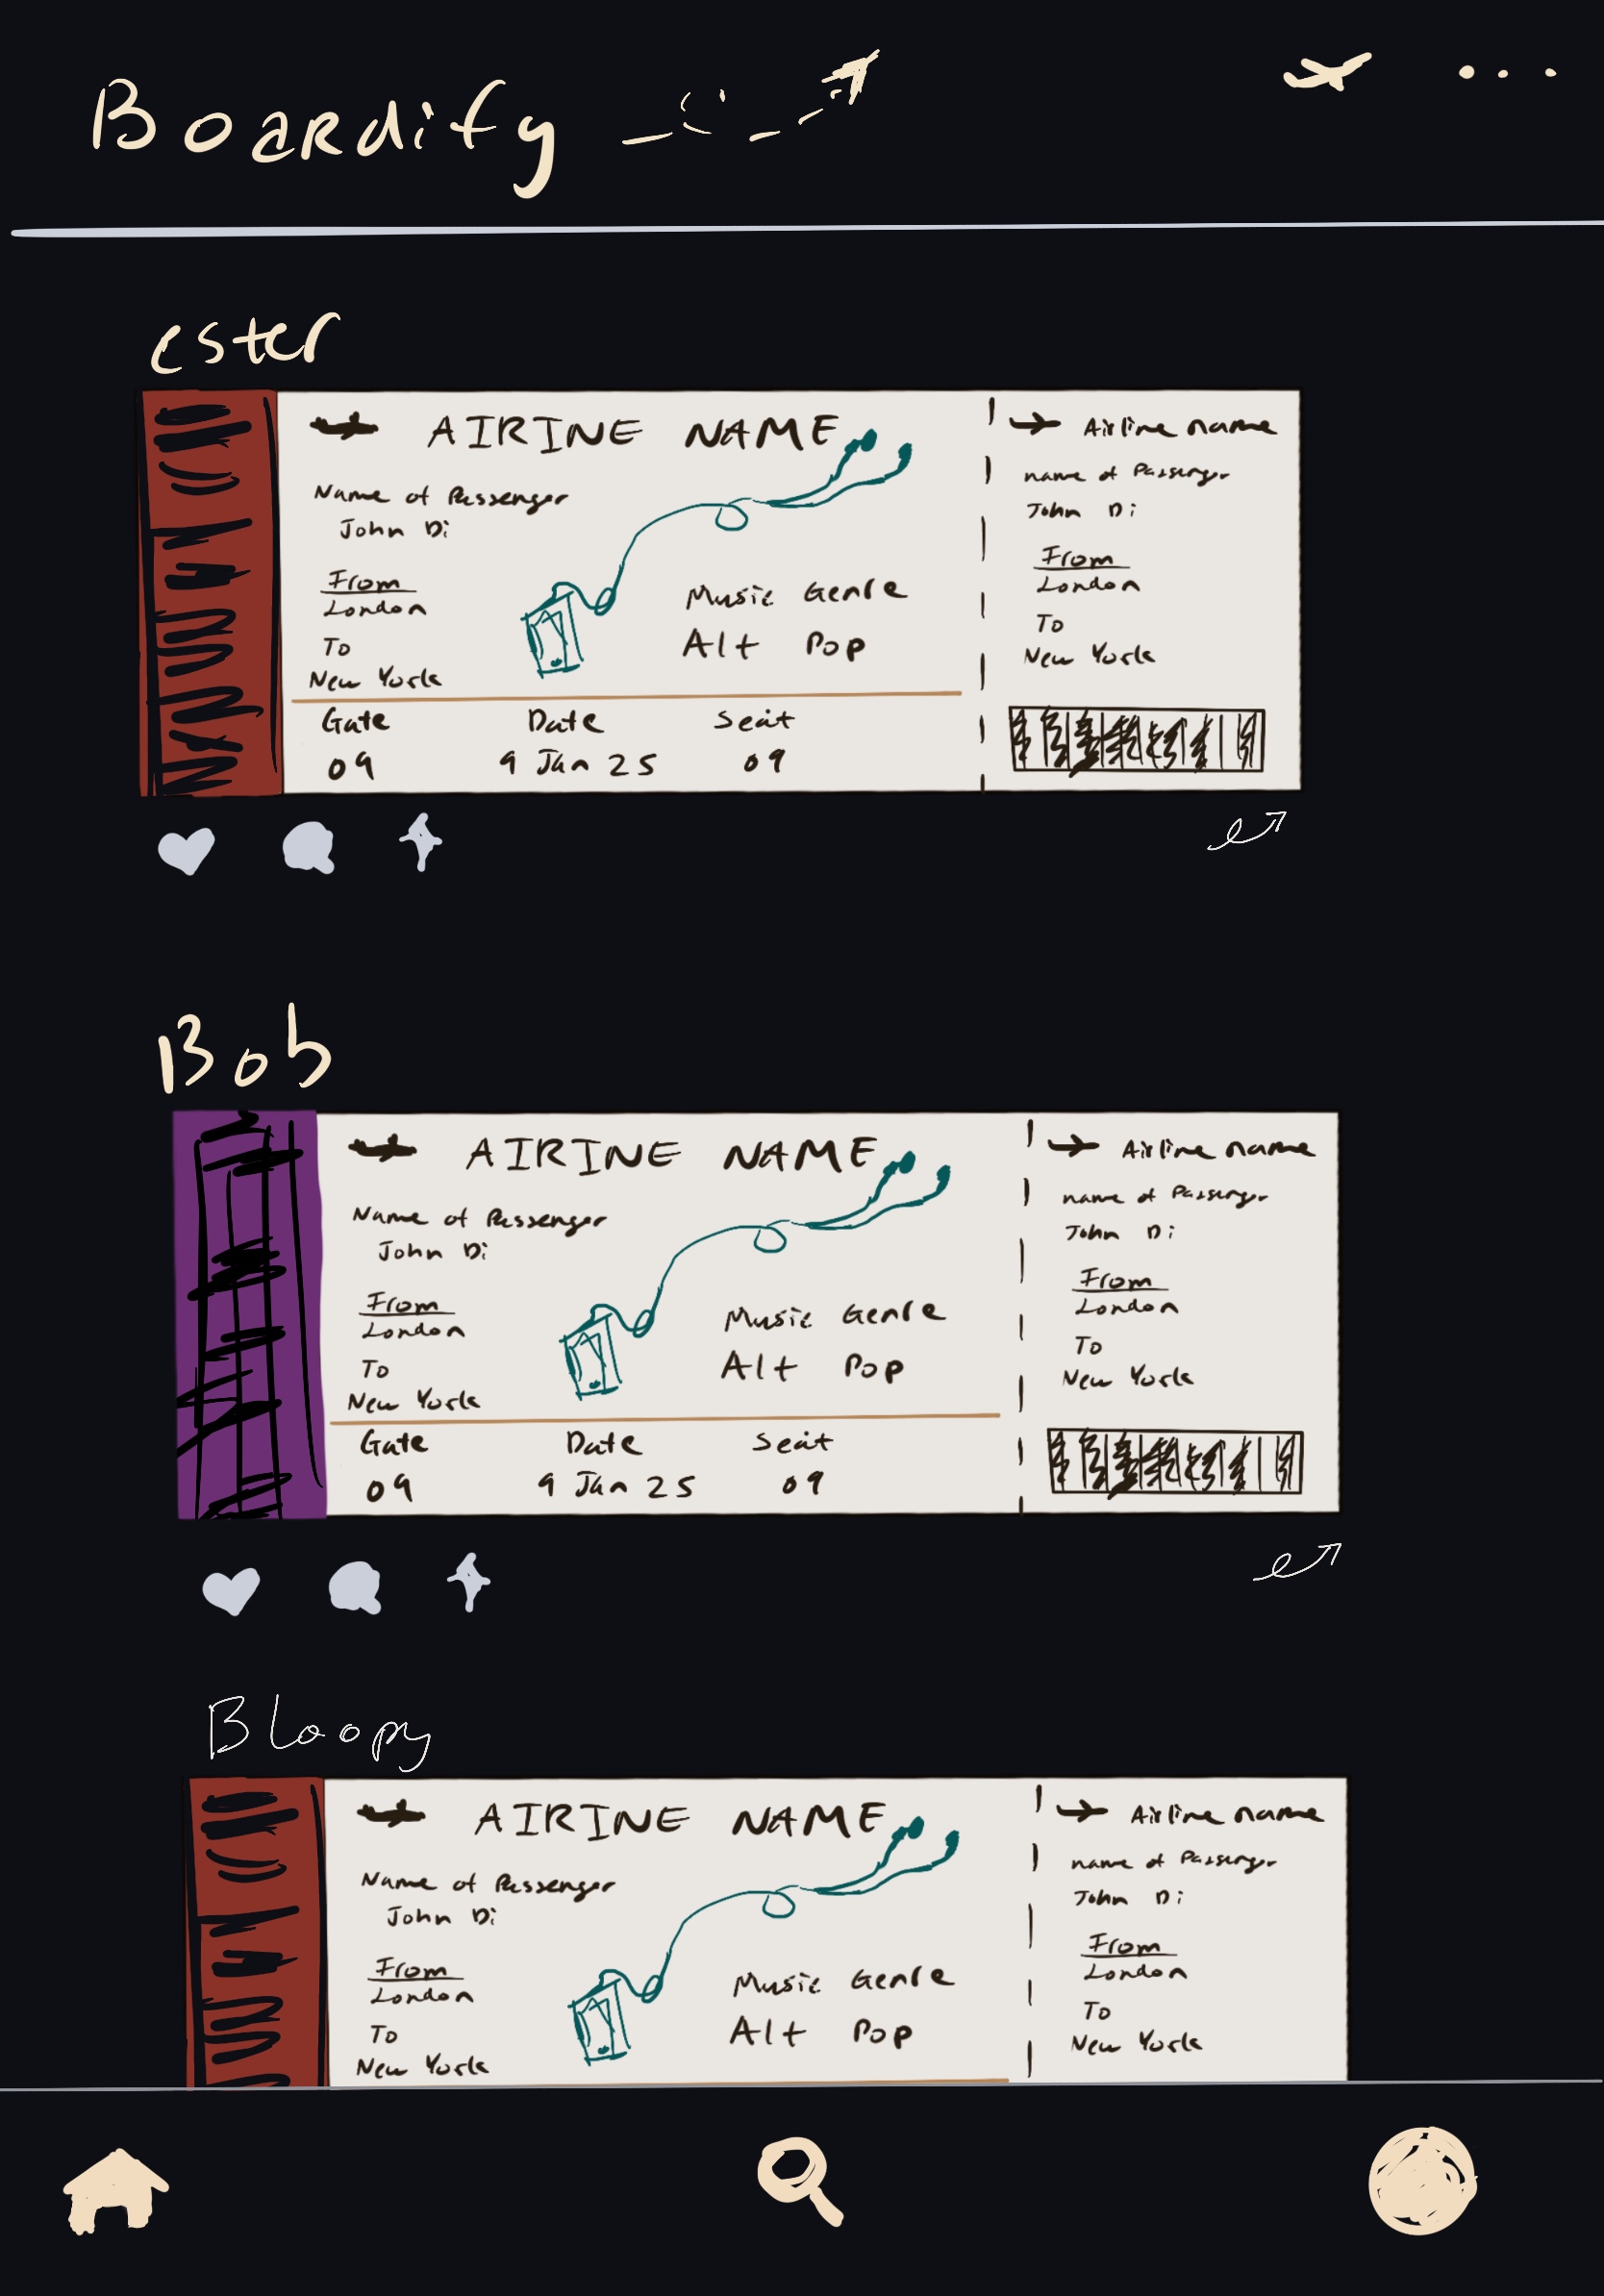 Boardify
ester
AIRINE NAME
Name of Passenger
John Di
From
London
To
New York
Music Genre
Alt Pop
Gate
09
Date
9 Jan 25
Seat
09
Airline name
name of Passenger
John Di
From
London
To
New York
Bob
AIRINE NAME
Name of Passenger
John Di
From
London
To
New York
Music Genre
Alt Pop
Gate
09
Date
9 Jan 25
Seat
09
Airline name
name of Passenger
John Di
From
London
To
New York
Bloopy
AIRINE NAME
Name of Passenger
John Di
From
London
To
New York
Music Genre
Alt Pop
Airline name
name of Passenger
John Di
From
London
To
New York